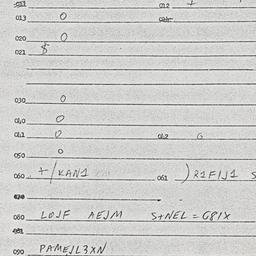 011 012
013 0
020 0
021 $
030 0
040 0
041 0 042 G
050 0
060 +/KAN1 061 )R1FIJ1 S
080 LOJF AEJM S+NEL=G8IX
090 PAMEJL3XN